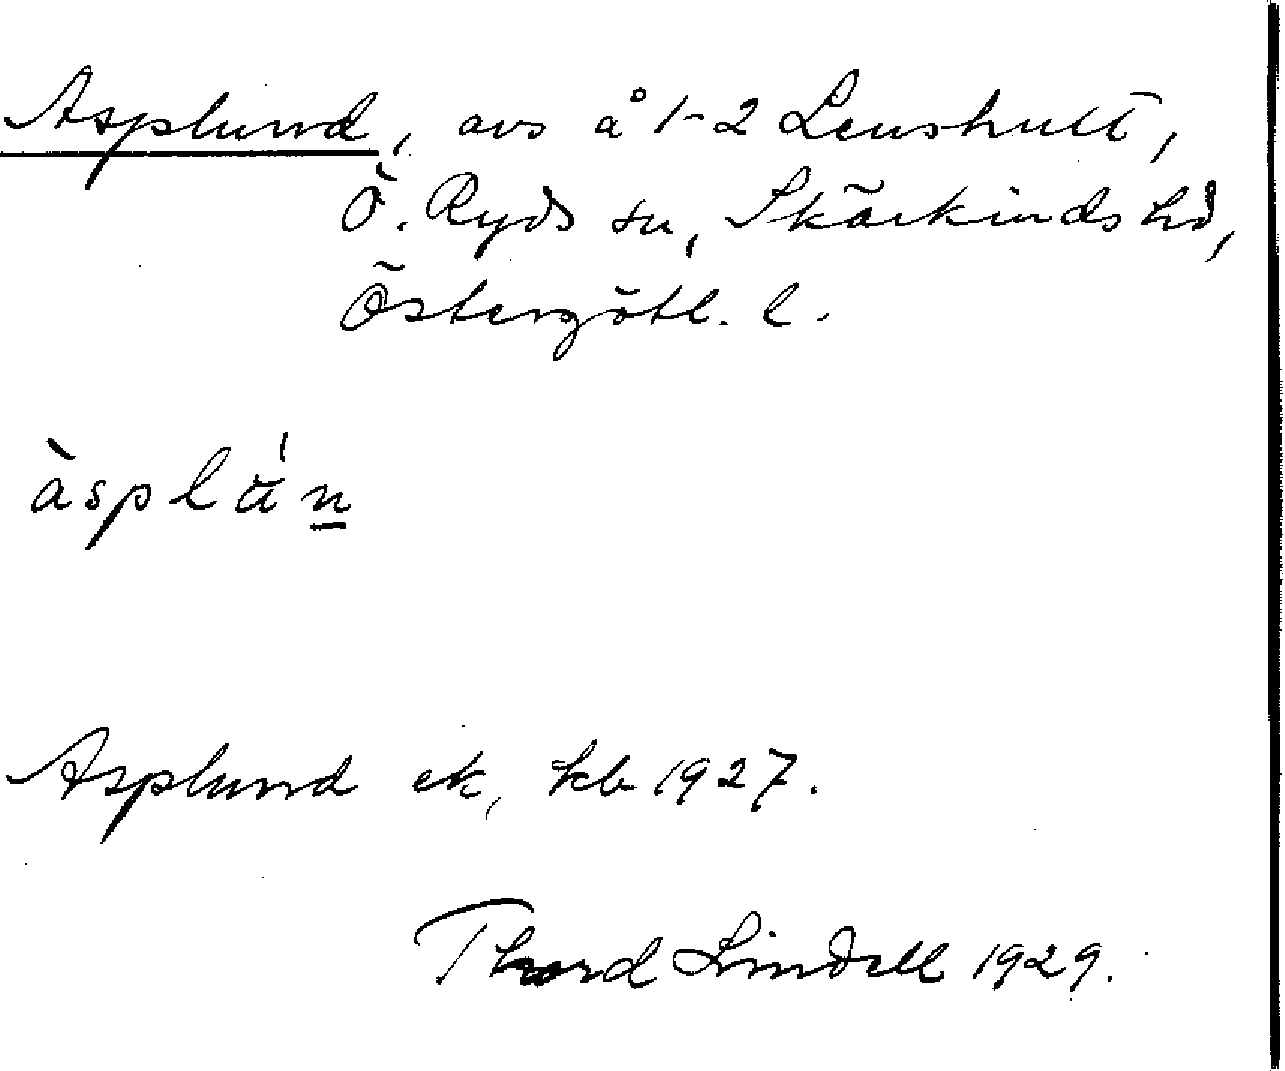 Asplund, avs å 1-2 Lenshult,
Ö. Ryds sn, Skärkinds hd,
Östergötl. l.
àsplán
Asplund ek, kb 1927.
Thord Lindell 1929.